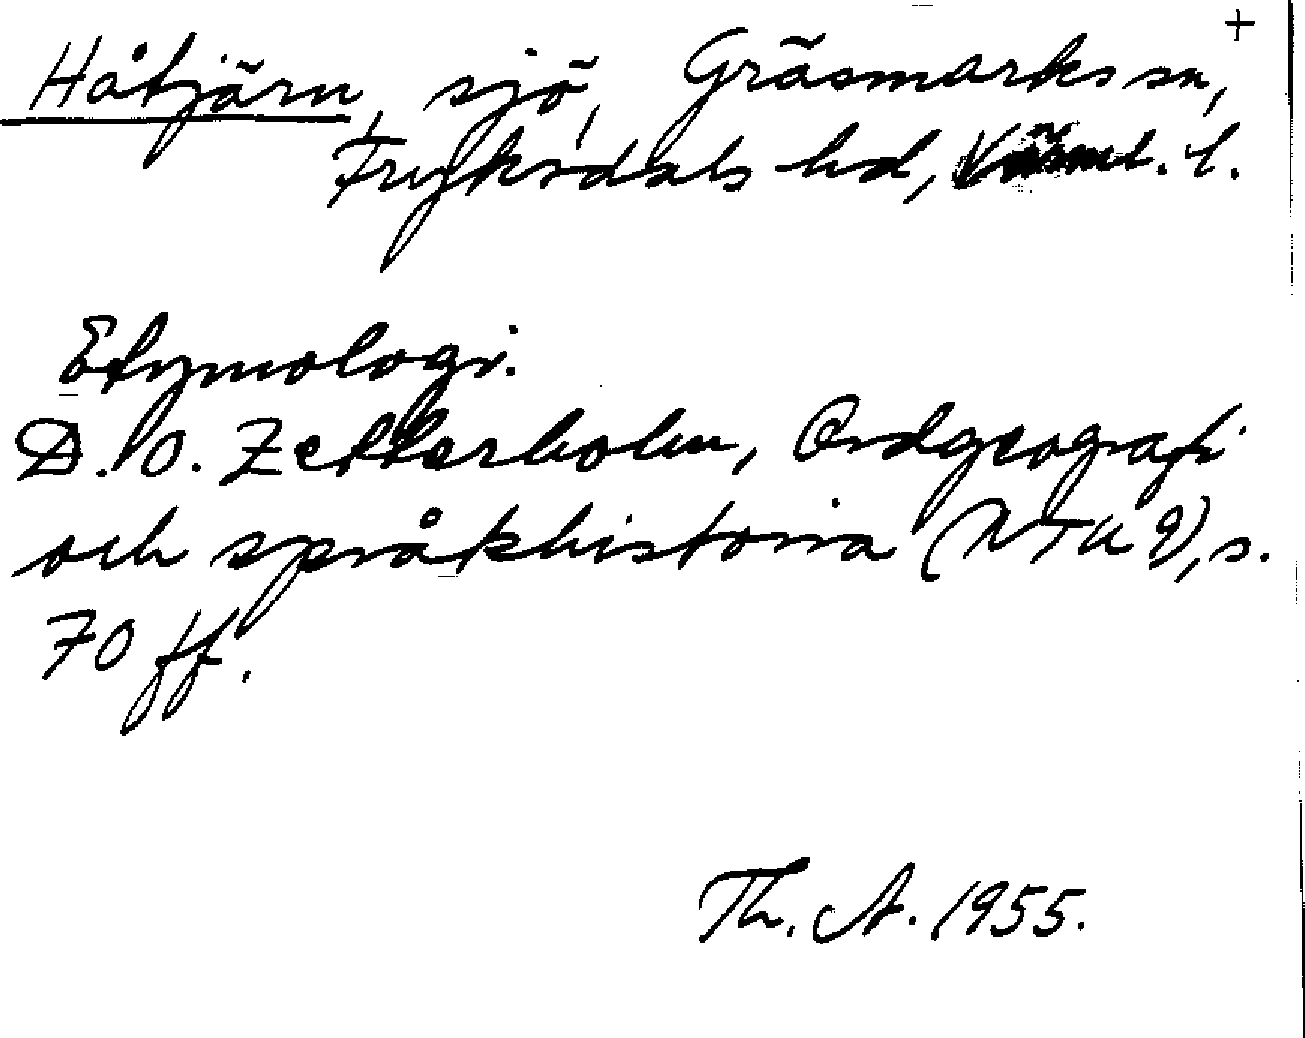 +
Håtjärn, sjö, Gräsmarks sn,
Fryksdals hd, Värml. l.
Etymologi.
D. O. Zetterholm, Ordgeografi
och språkhistoria (NTU 9), s.
70 ff.
Th. A. 1955.